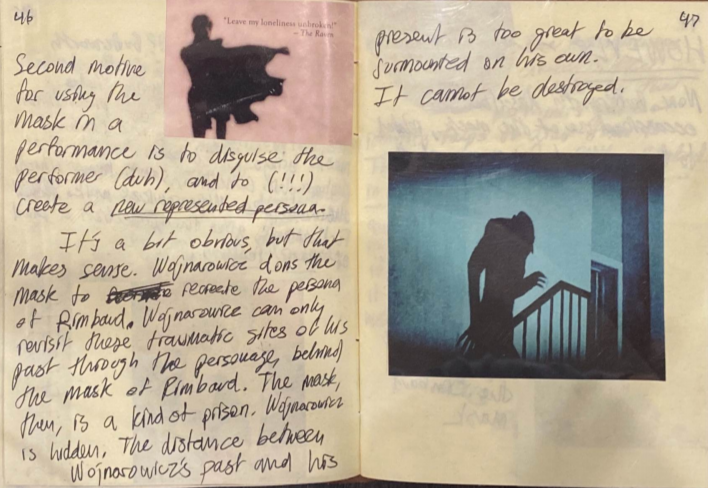 46
"Leave my loneliness unbroken!"
– The Raven
Second motive
for using the
mask in a
performance is to disguise the
performer (duh), and to (!!!)
create a new represented persona.
It's a bit obvious, but that
makes sense. Wojnarowicz dons the
mask to recreate the persona
of Rimbaud. Wojnarowicz can only
revisit these traumatic sites of his
past through the personage, behind
the mask of Rimbaud. The mask,
then, is a kind of prison. Wojnarowicz
is hidden. The distance between
Wojnarowicz's past and his
47
present is too great to be
surmounted on his own.
It cannot be destroyed.